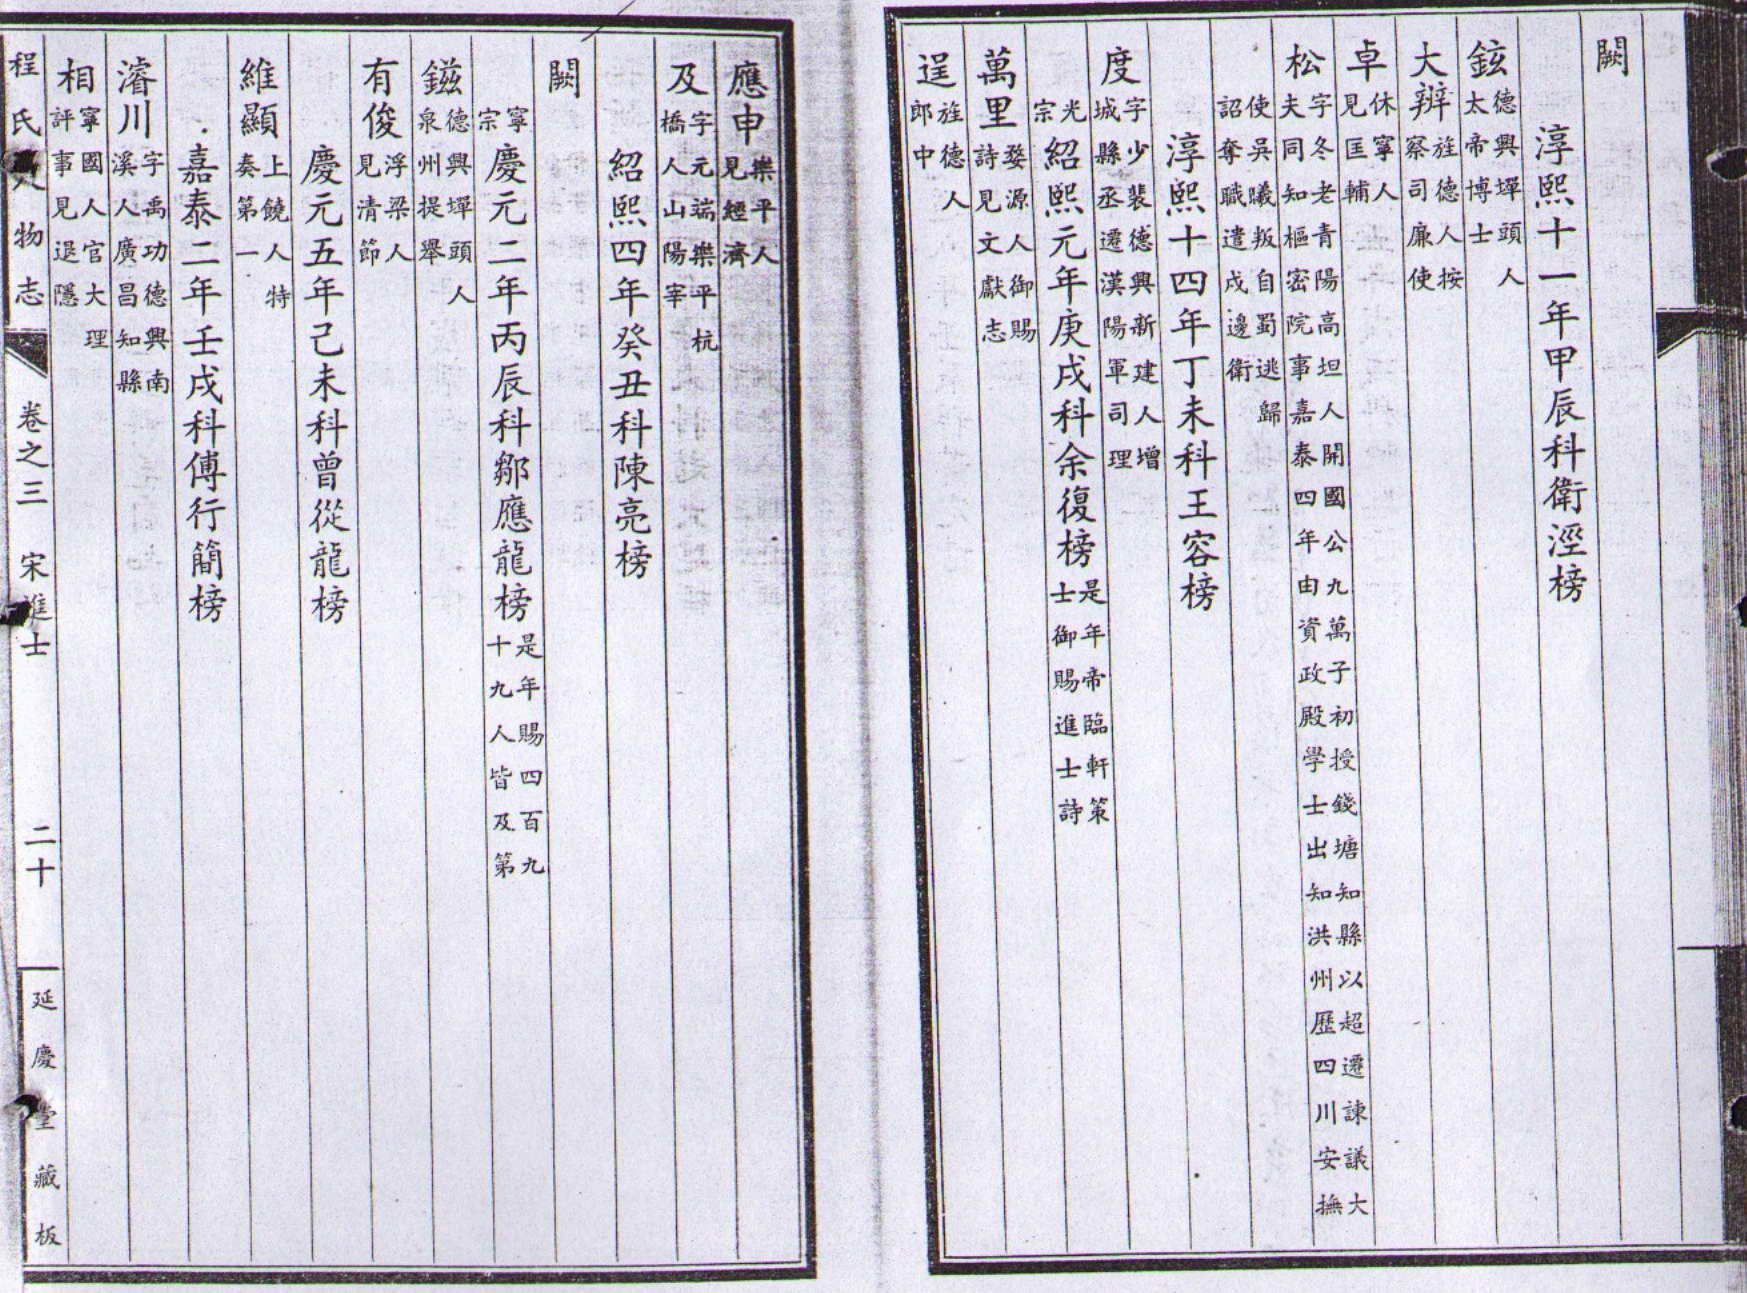 闕
淳熙十一年甲辰科衛涇榜
鉉德興墠頭人
太帝博士
大辩旌德人按
察司廉使
卓休寧人
見匡輔
松字冬老青陽高坦人開國公九萬子初授錢塘知縣以超遷諫議大
夫同知樞密院事嘉泰四年由資政殿學士出知洪州歷四川安撫
使吳曦叛自蜀逃歸
詔奪職遣戍邊衛
淳熙十四年丁未科王容榜
度字少裴德興新建人增
城縣丞遷漢陽軍司理
光宗紹熙元年庚戌科余復榜是年帝臨軒策
士御賜進士詩
萬里婺源人御賜
詩見文獻志
逞旌德人
郎中
應申樂平人
見經濟
及字元端樂平杭
橋人山陽宰
紹熙四年癸丑科陳亮榜
闕
寧宗慶元二年丙辰科鄒應龍榜是年賜四百九
十九人皆及第
鎡德興墠頭人
泉州提舉
有俊浮梁人
見清節
慶元五年己未科曾從龍榜
維顯上饒人特
奏第一
嘉泰二年壬戌科傅行簡榜
濬川字禹功德興南
溪人廣昌知縣
相寧國人官大理
評事見退隱
程氏人物志 卷之三 宋進士 二十 延慶堂藏板